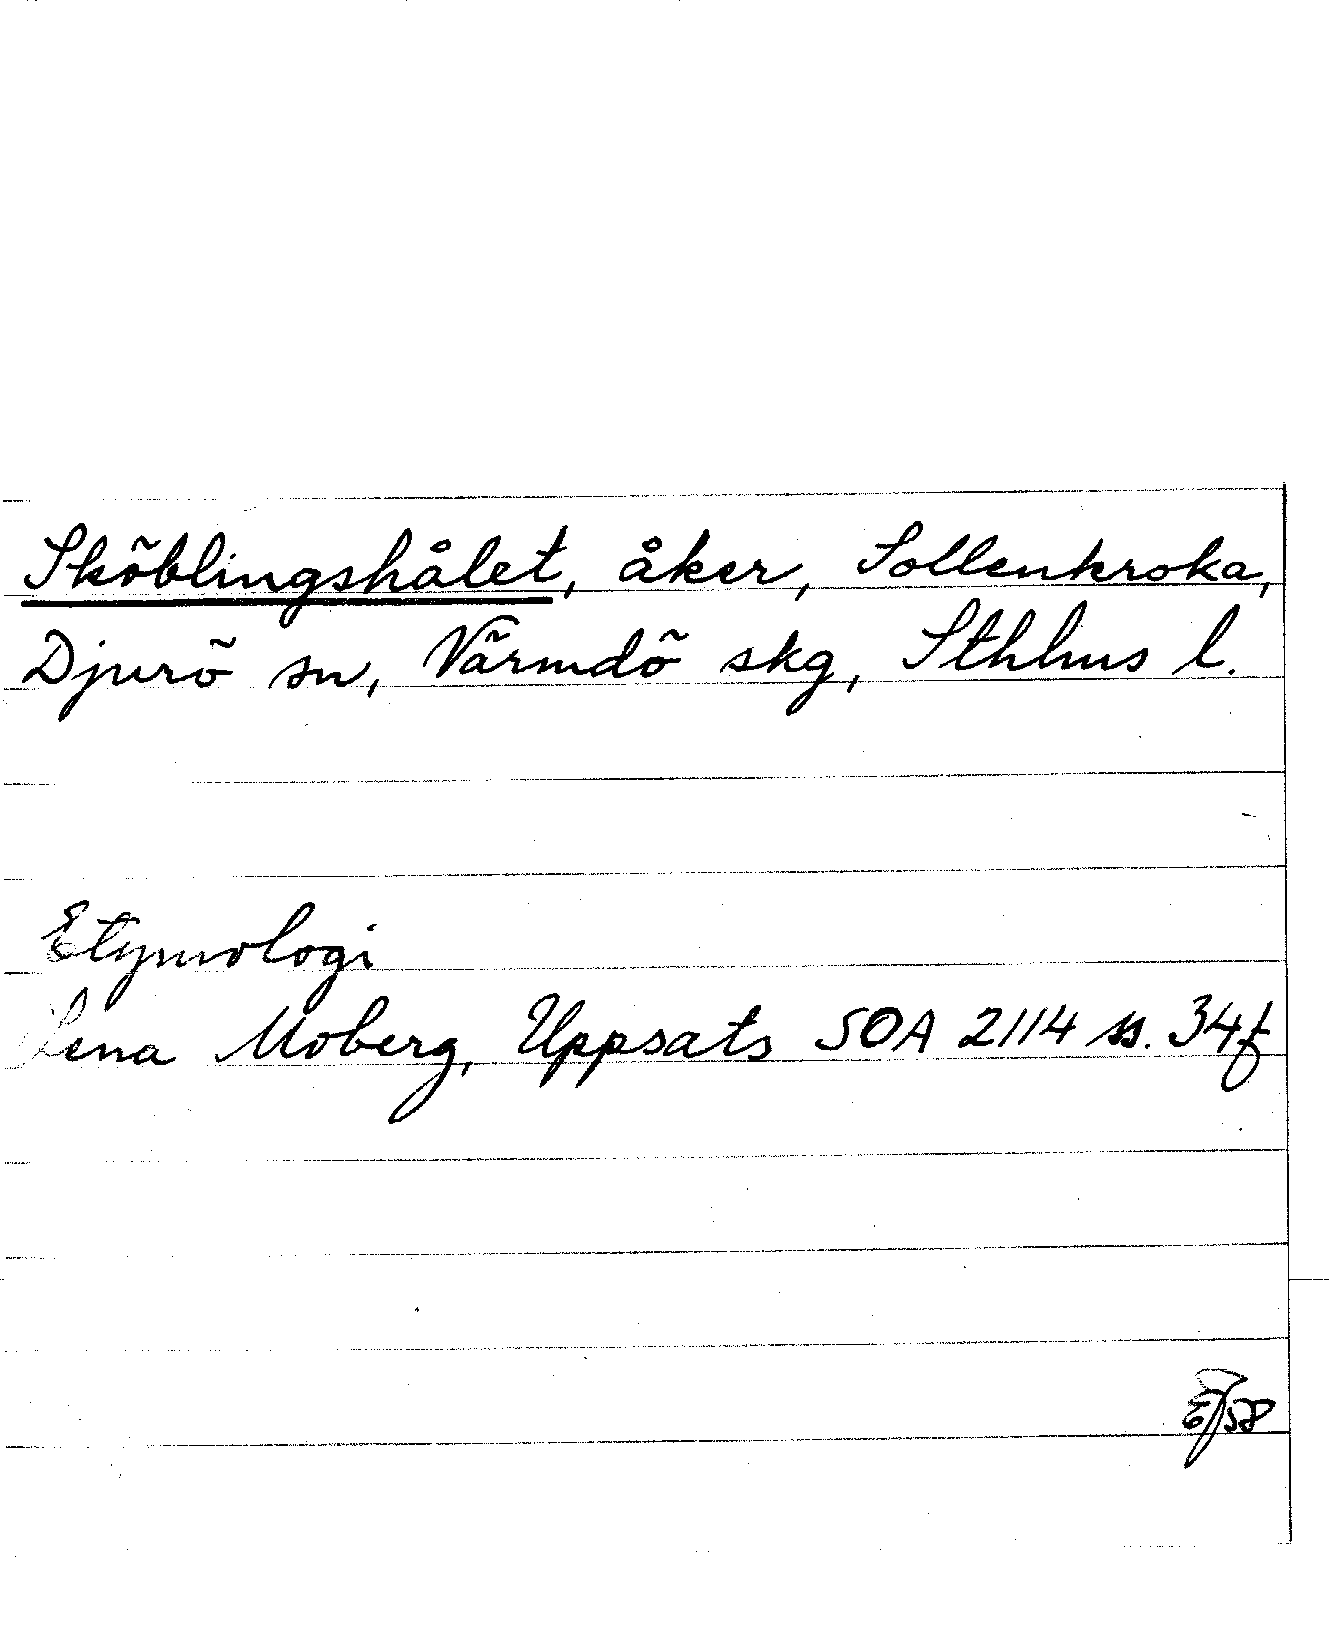 Sköblingshålet, åker, Sollenkroka,
Djurö sn, Värmdö skg, Sthlms l.
Etymologi
Lena Moberg, Uppsats SOA 2114 ss. 34f